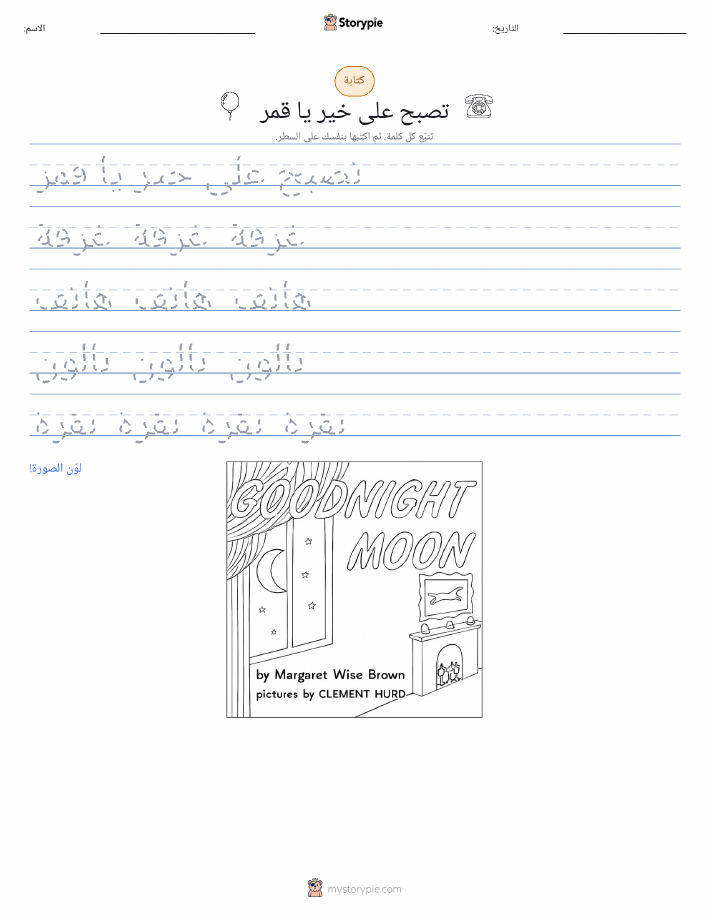 Storypie
الاسم:
التاريخ:
كتابة
تصبح على خير يا قمر
تتبّع كل كلمة، ثم اكتبها بنفسك على السطر.
تصبح على خير يا قمر
غرفة غرفة غرفة
هاتف هاتف هاتف
بالون بالون بالون
بقرة بقرة بقرة بقرة
لوّن الصورة!
GOODNIGHT
MOON
by Margaret Wise Brown
pictures by CLEMENT HURD
mystorypie.com